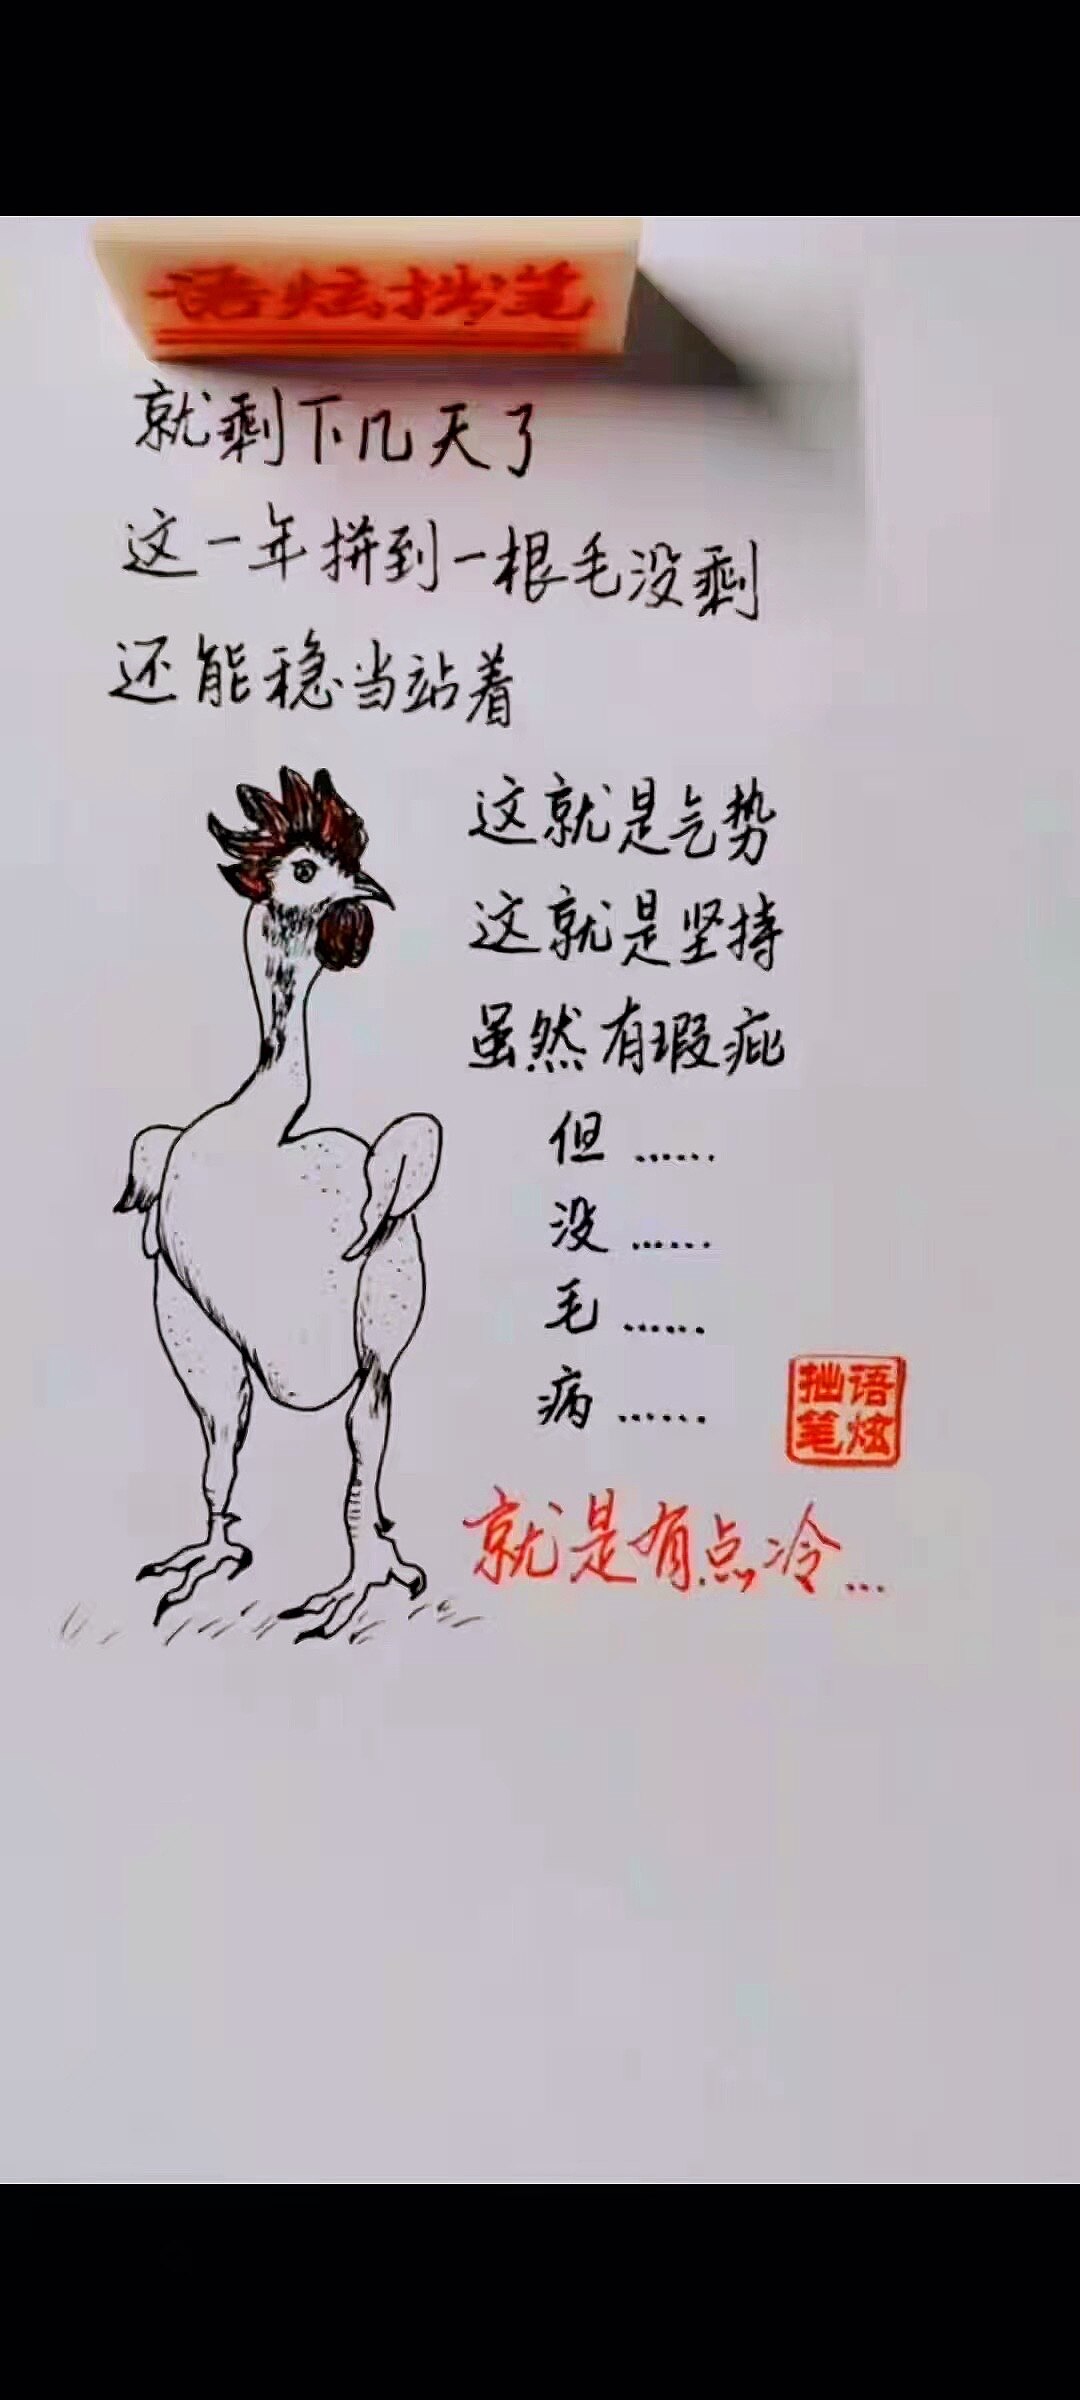 语炫拙笔
就剩下几天了
这一年拼到一根毛没剩
还能稳当站着
这就是气势
这就是坚持
虽然有瑕疵
但......
没......
毛......
病......
语炫
拙笔
就是有点冷...